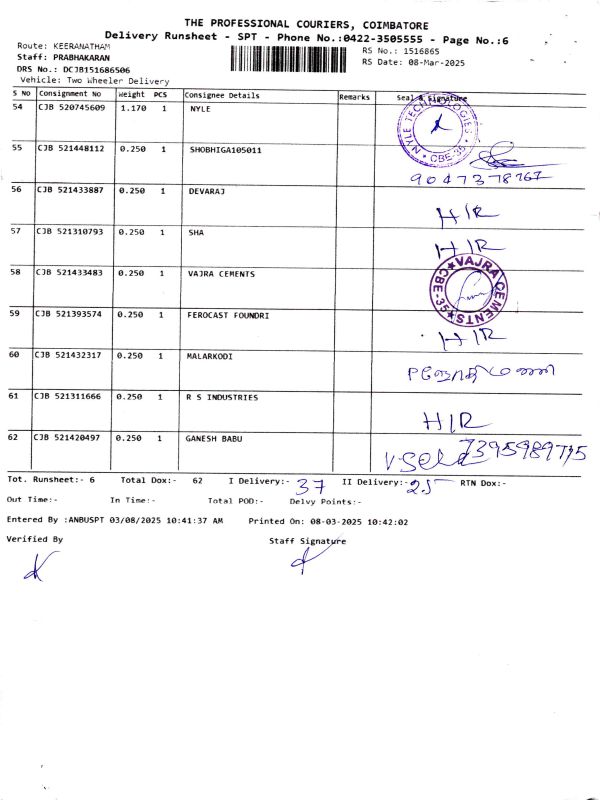 THE PROFESSIONAL COURIERS, COIMBATORE
Delivery Runsheet - SPT - Phone No.:0422-3505555 - Page No.:6
Route: KEERANATHAM
RS No.: 1516865
Staff: PRABHAKARAN
RS Date: 08-Mar-2025
DRS No.: DCJB151686506
Vehicle: Two Wheeler Delivery
S No Consignment No Weight PCS Consignee Details Remarks Seal & Signature
54 CJB 520745609 1.170 1 NYLE
NYLE TECHNOLOGIES * CBE-35 *
55 CJB 521448112 0.250 1 SHOBHIGA105011
9047378767
56 CJB 521433887 0.250 1 DEVARAJ
H/R
57 CJB 521310793 0.250 1 SHA
H/R
58 CJB 521433483 0.250 1 VAJRA CEMENTS
VAJRA CEMENTS * CBE-35 *
59 CJB 521393574 0.250 1 FEROCAST FOUNDRI
H/R
60 CJB 521432317 0.250 1 MALARKODI
61 CJB 521311666 0.250 1 R S INDUSTRIES
H/R
62 CJB 521420497 0.250 1 GANESH BABU
7395989795
Tot. Runsheet:- 6 Total Dox:- 62 I Delivery:- 37 II Delivery:- 25 RTN Dox:-
Out Time:- In Time:- Total POD:- Delvy Points:-
Entered By :ANBUSPT 03/08/2025 10:41:37 AM Printed On: 08-03-2025 10:42:02
Verified By Staff Signature